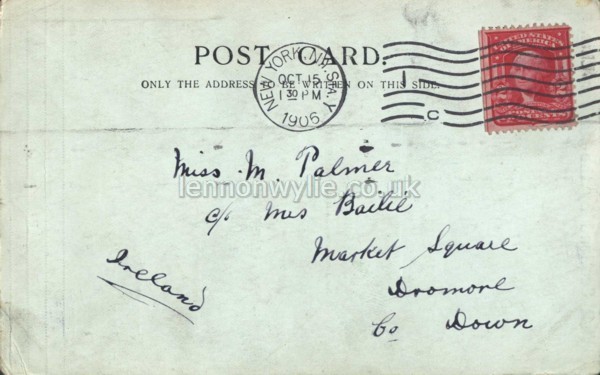 POST CARD.
ONLY THE ADDRESS TO BE WRITTEN ON THIS SIDE.
NEW YORK, N.Y. STA. Y
OCT 15
1 30 PM
1906
1
C
UNITED STATES
OF AMERICA
TWO CENTS
Miss M. Palmer
lennonwylie.co.uk
c/o Mrs Bailie
Market Square
Dromore
Co Down
Ireland